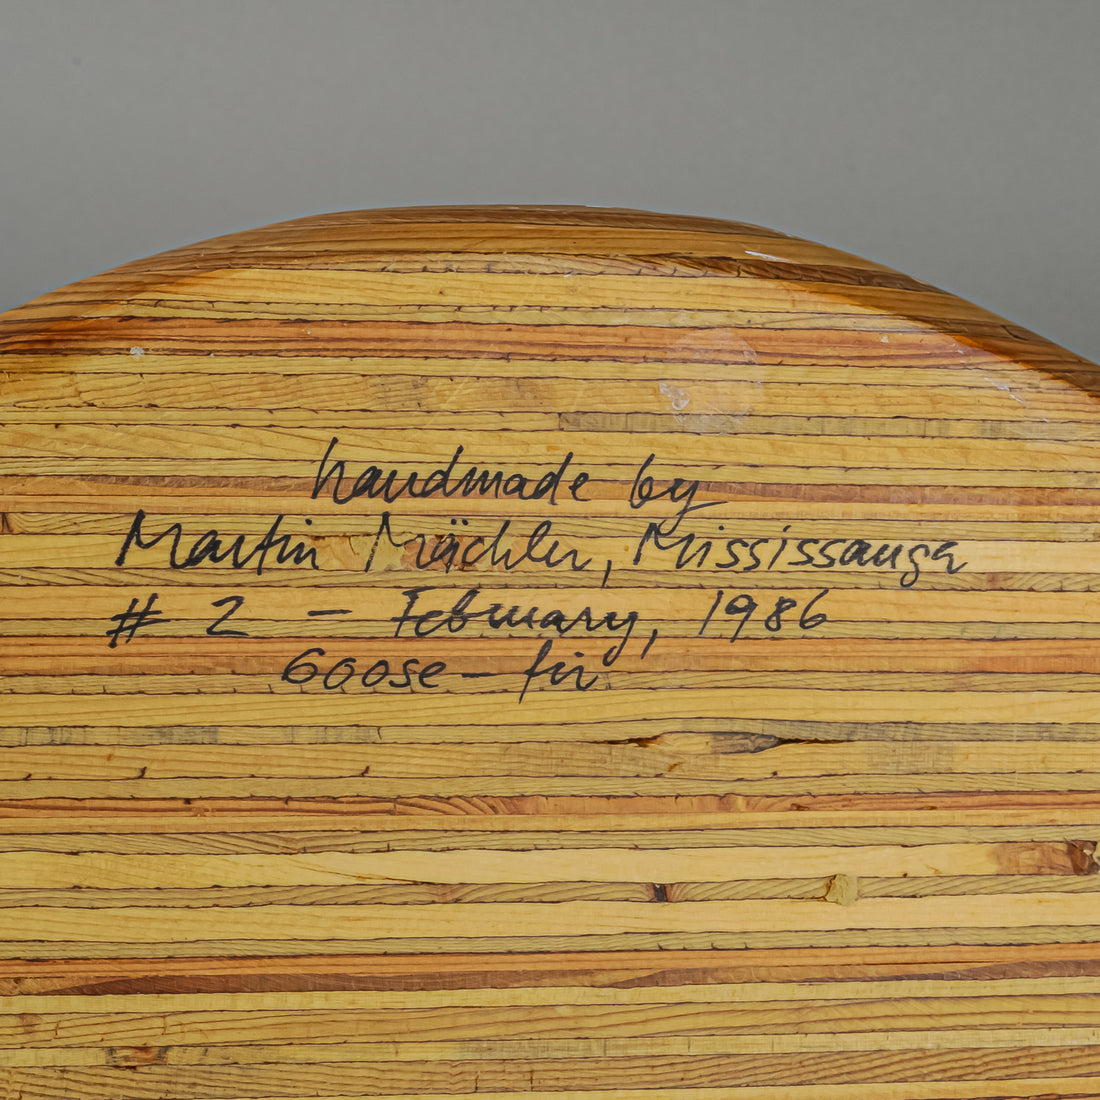 handmade by
Martin Mächler, Mississauga
# 2 - February, 1986
Goose - fir